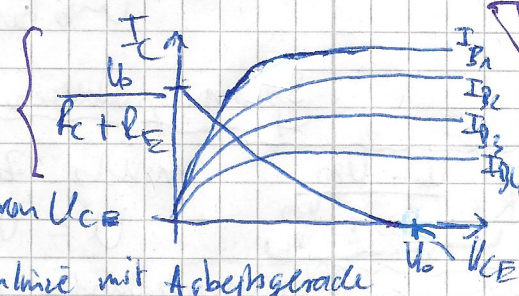 I_C
U₀
I_B1
R_C + R_E
I_B2
I_B3
I_B4
von U_CE
U₀ U_CE
mit Arbeitsgerade